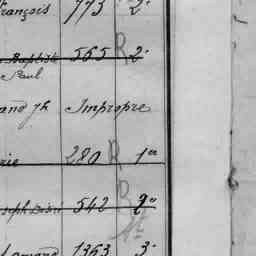 François 773 2e
Baptiste 565 R 2e
Paul
and Jh Impropre
rie 280 R 1er
Joseph Désiré 542 R 2e
Amand 1363 3e